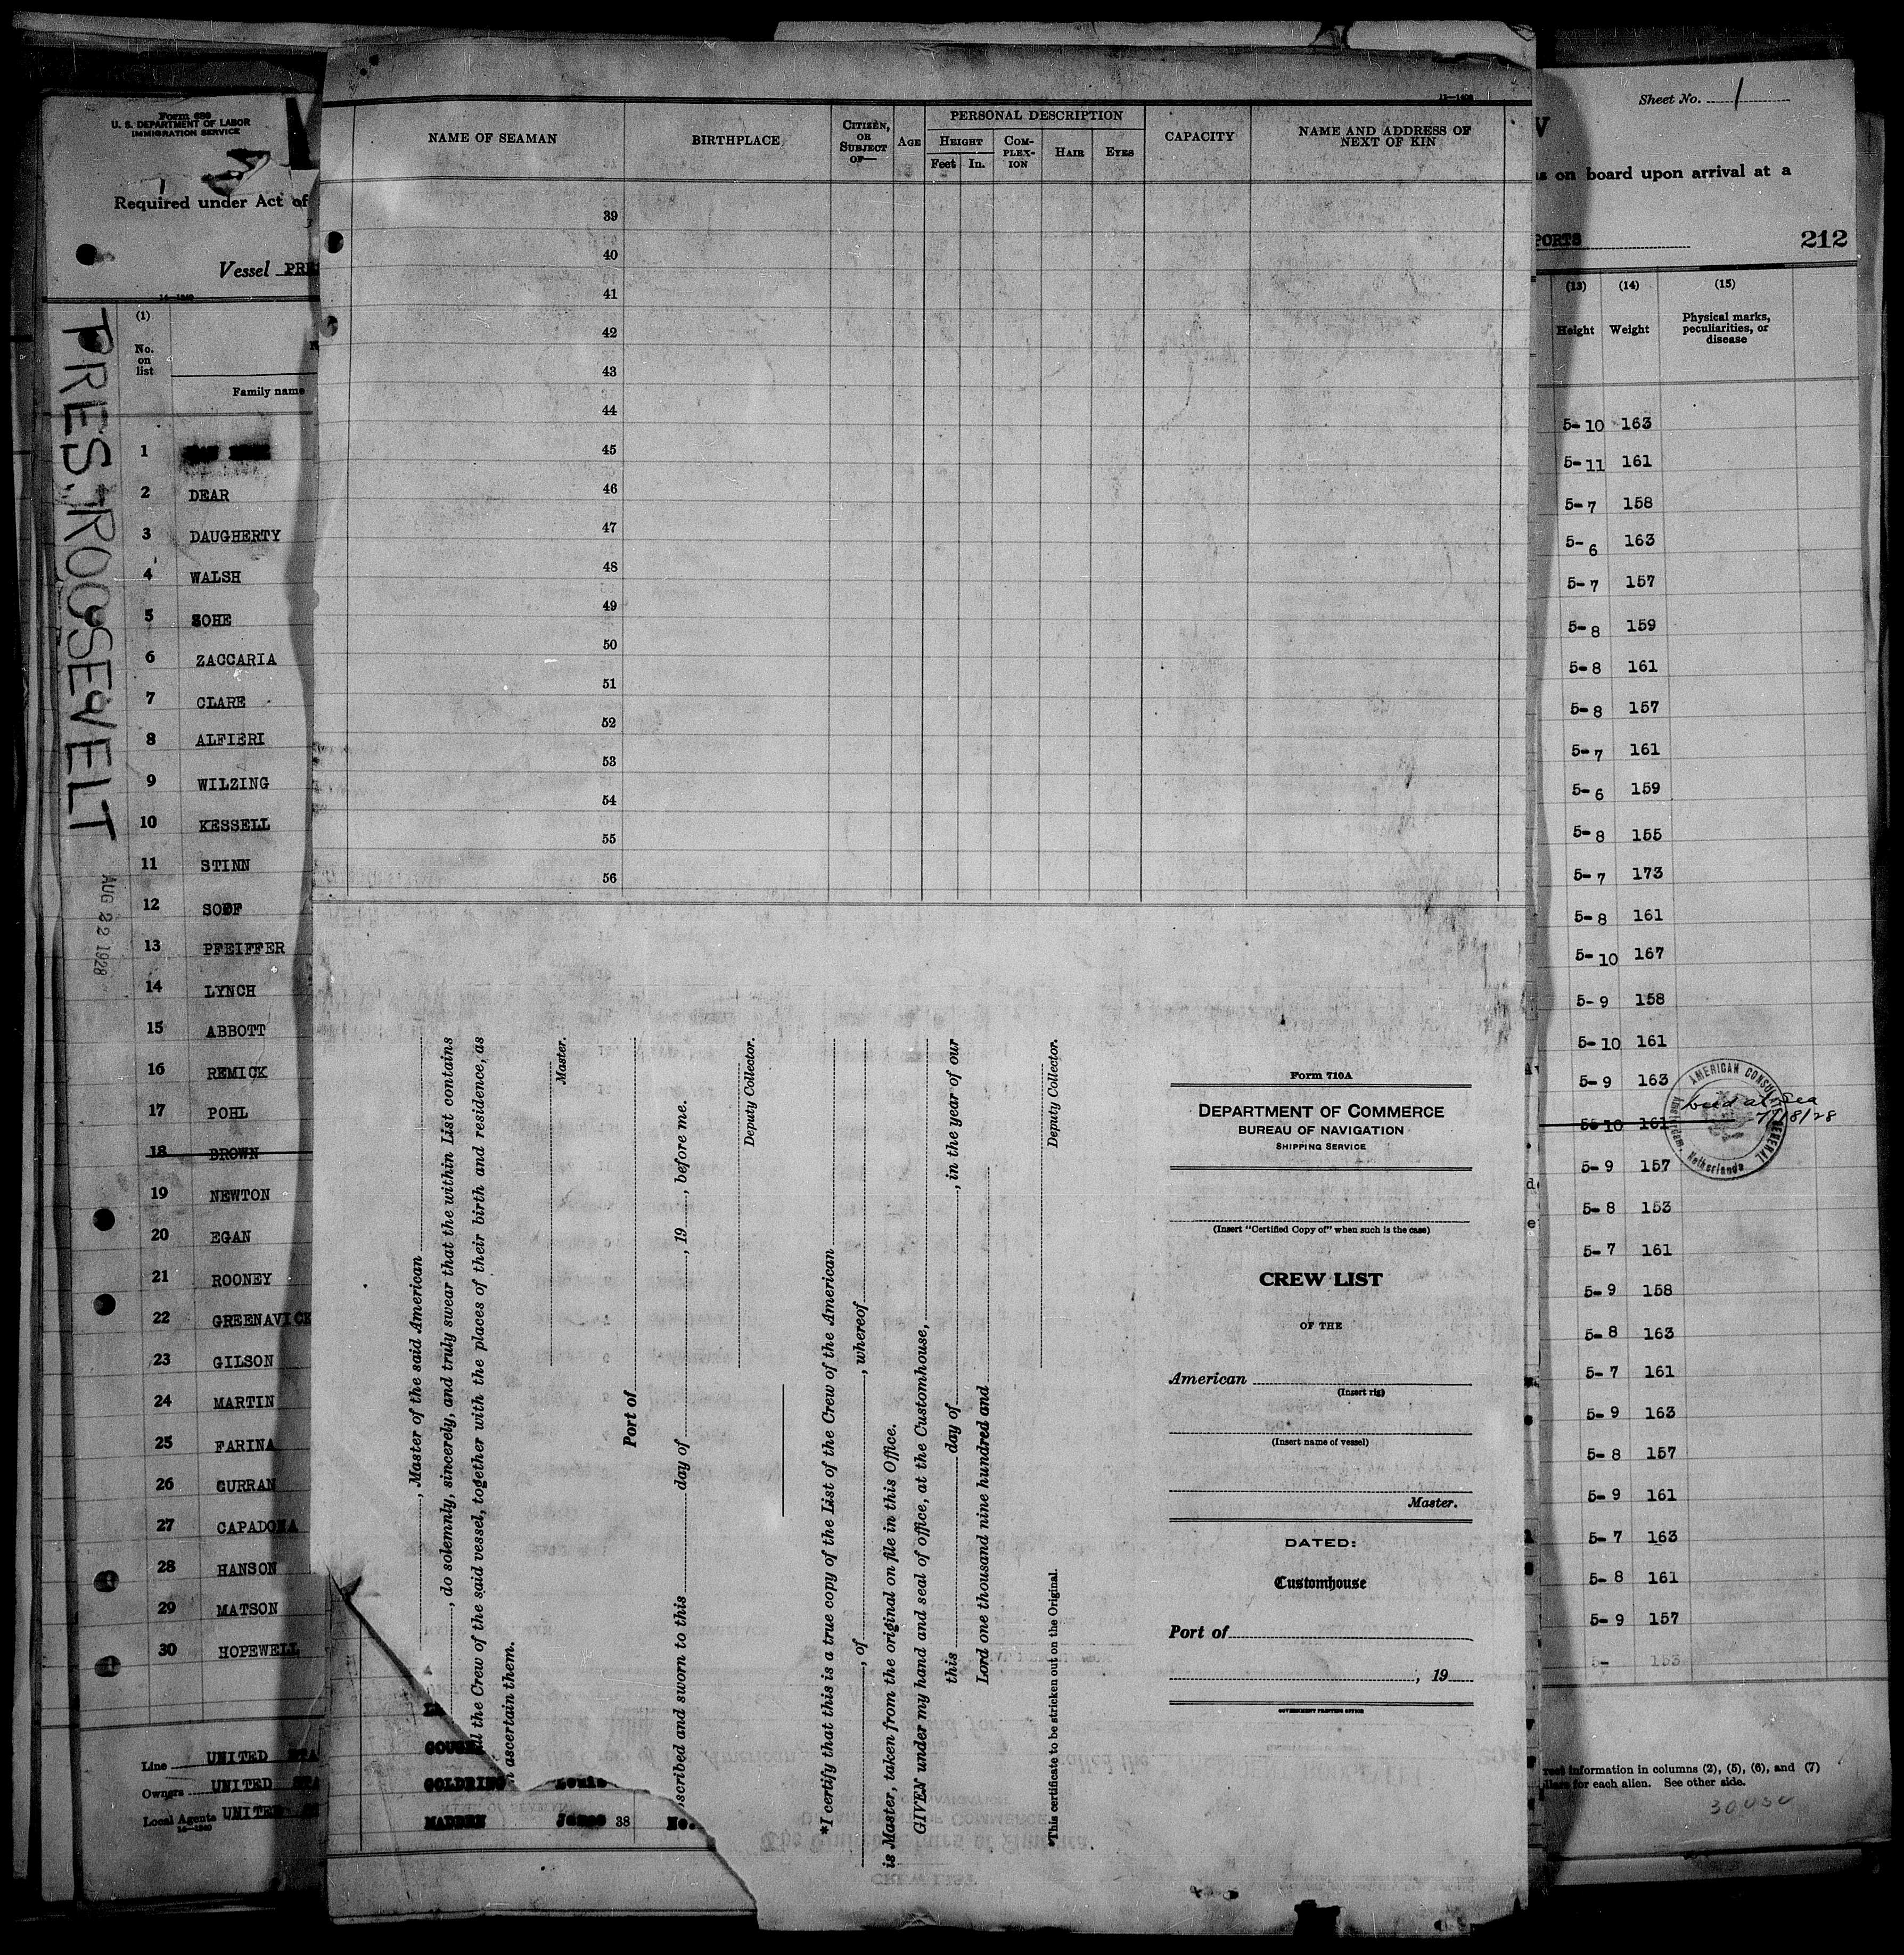 Form 680
U. S. DEPARTMENT OF LABOR
IMMIGRATION SERVICE
Required under Act of
Vessel PRE
14—1240
PRES. ROOSEVELT
AUG 22 1928
(1)
No.
on
list
Family name
1
2 DEAR
3 DAUGHERTY
4 WALSH
5 SOHE
6 ZACCARIA
7 CLARE
8 ALFIERI
9 WILZING
10 KESSELL
11 STINN
12 SODF
13 PFEIFFER
14 LYNCH
15 ABBOTT
16 REMICK
17 POHL
18 BROWN
19 NEWTON
20 EGAN
21 ROONEY
22 GREENAVICK
23 GILSON
24 MARTIN
25 FARINA
26 CURRAN
27 CAPADONA
28 HANSON
29 MATSON
30 HOPEWELL
Line UNITED STA
Owners UNITED STA
Local Agents UNITED
14—1240
11—1406
NAME OF SEAMAN
BIRTHPLACE
CITIZEN,
OR
SUBJECT
OF—
AGE
PERSONAL DESCRIPTION
HEIGHT
Feet In.
COM-
PLEX-
ION
HAIR
EYES
CAPACITY
NAME AND ADDRESS OF
NEXT OF KIN
39
40
41
42
43
44
45
46
47
48
49
50
51
52
53
54
55
56
, Master of the said American
, do solemnly, sincerely, and truly swear that the within List contains
ll the Crew of the said vessel, together with the places of their birth and residence, as
n ascertain them.
Master.
Port of
scribed and sworn to this day of , 19 , before me.
Deputy Collector.
*I certify that this is a true copy of the List of the Crew of the American
, of , whereof
is Master, taken from the original on file in this Office.
GIVEN under my hand and seal of office, at the Customhouse,
this day of , in the year of our
Lord one thousand nine hundred and
Deputy Collector.
*This certificate to be stricken out on the Original.
Form 710A
DEPARTMENT OF COMMERCE
BUREAU OF NAVIGATION
SHIPPING SERVICE
(Insert "Certified Copy of" when such is the case)
CREW LIST
OF THE
American
(Insert rig)
(Insert name of vessel)
Master.
DATED:
Customhouse
Port of
, 19
GOVERNMENT PRINTING OFFICE
LA
GOUSE
GOLDRING Louis
MADDEN James 38 No.
Sheet No. 1
s on board upon arrival at a
PORTS
212
(13) (14) (15)
Height
Weight
Physical marks,
peculiarities, or
disease
5-10 163
5-11 161
5-7 158
5-6 163
5-7 157
5-8 159
5-8 161
5-8 157
5-7 161
5-6 159
5-8 155
5-7 173
5-8 161
5-10 167
5-9 158
5-10 161
5-9 163
5-10 161 Died at Sea
7/18/28
AMERICAN CONSULATE GENERAL
Amsterdam, Netherlands
5-9 157
5-8 153
5-7 161
5-9 158
5-8 163
5-7 161
5-9 163
5-8 157
5-9 161
5-7 163
5-8 161
5-9 157
5- 153
rect information in columns (2), (5), (6), and (7)
for each alien. See other side.